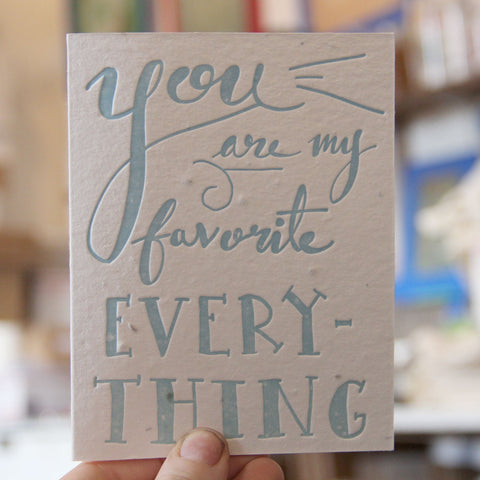 You
are my
favorite
EVERY-
THING